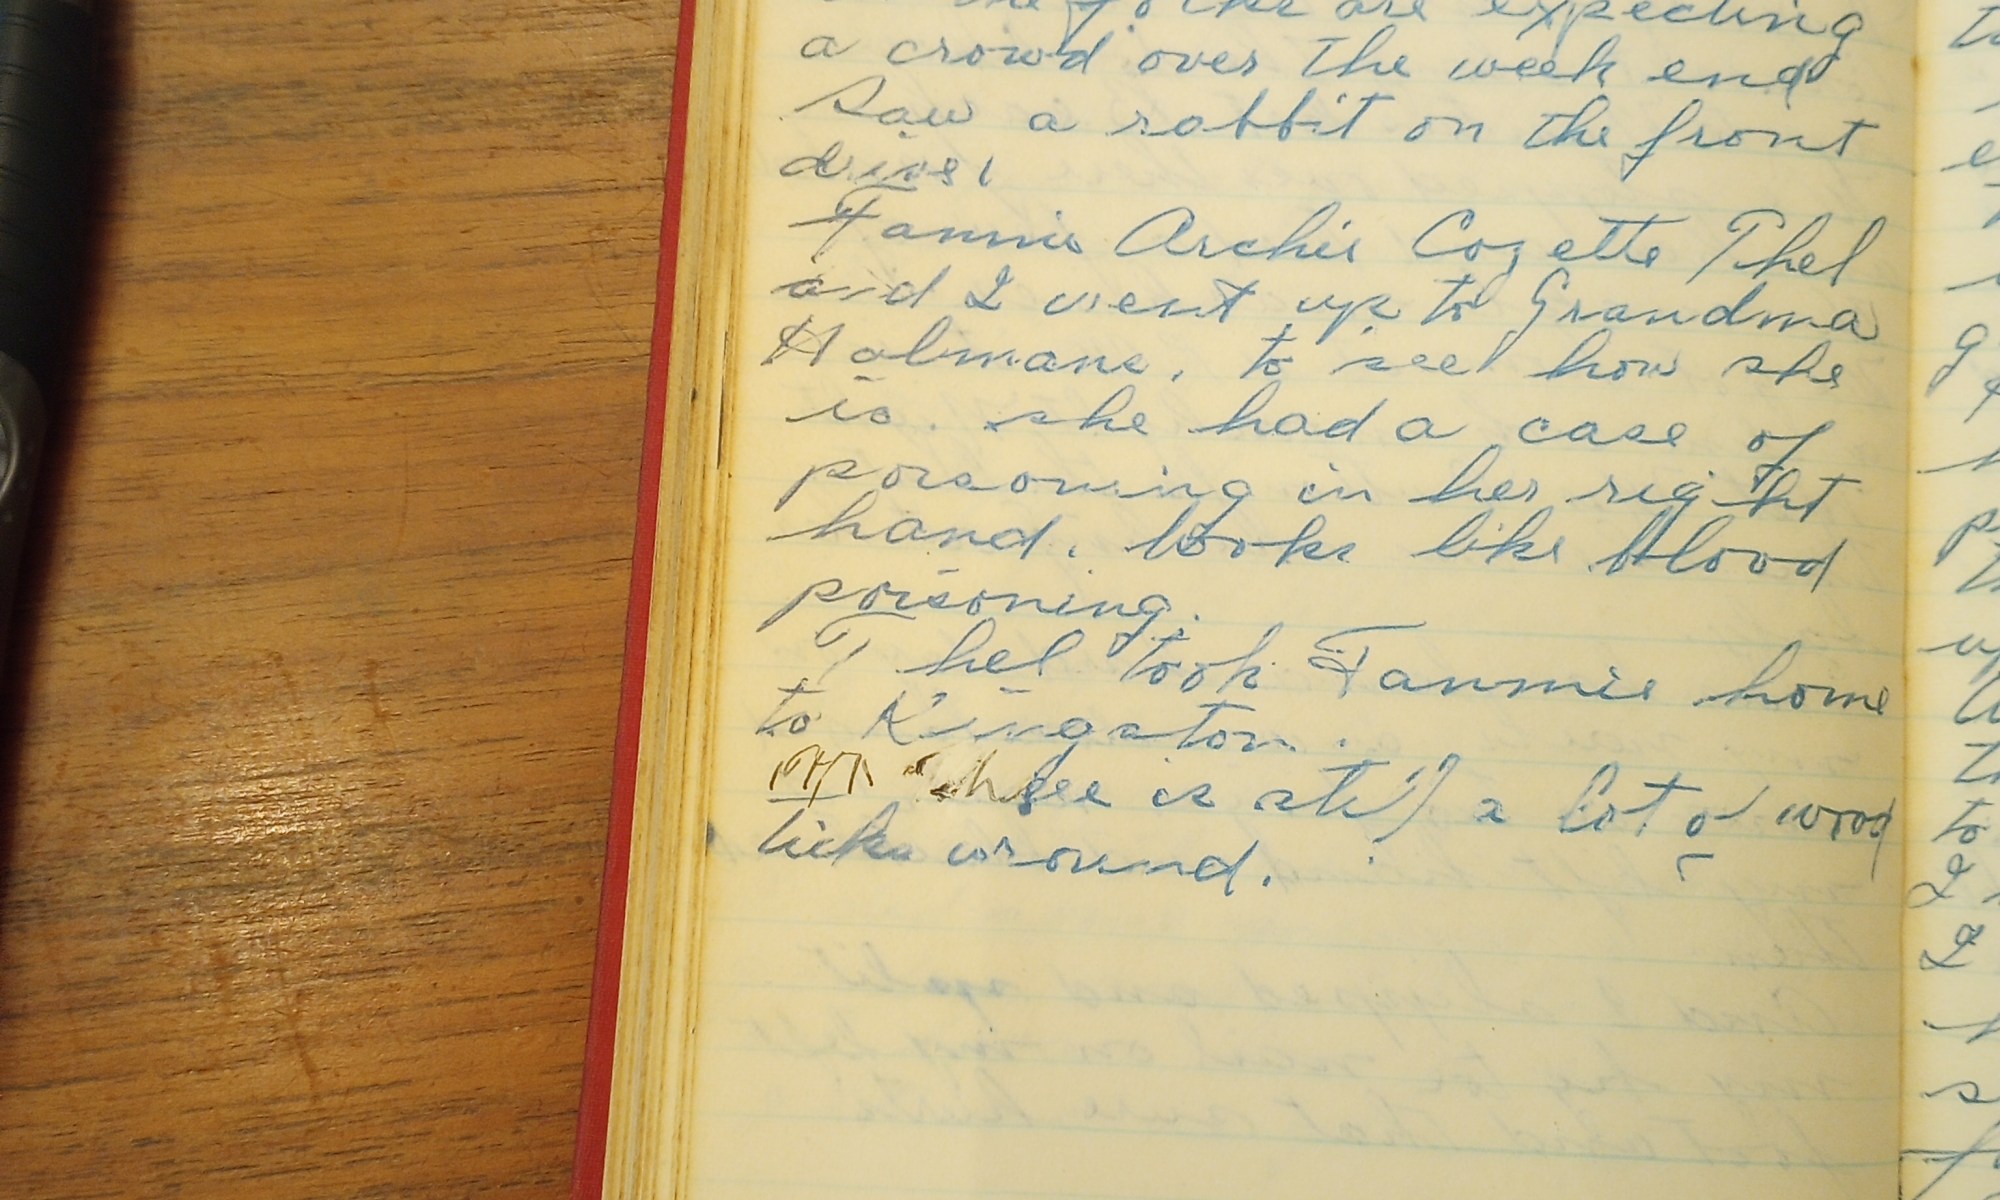 the folks are expecting
a crowd over the week end
Saw a rabbit on the front
drive.
Fannie Archie Cozette Thel
and I went up to Grandma
Holmans. to see how she
is. she had a case of
poisoning in her right
hand. looks like blood
poisoning.
Thel took Fannie home
to Kingston.
is still a lot of wood
ticks around.